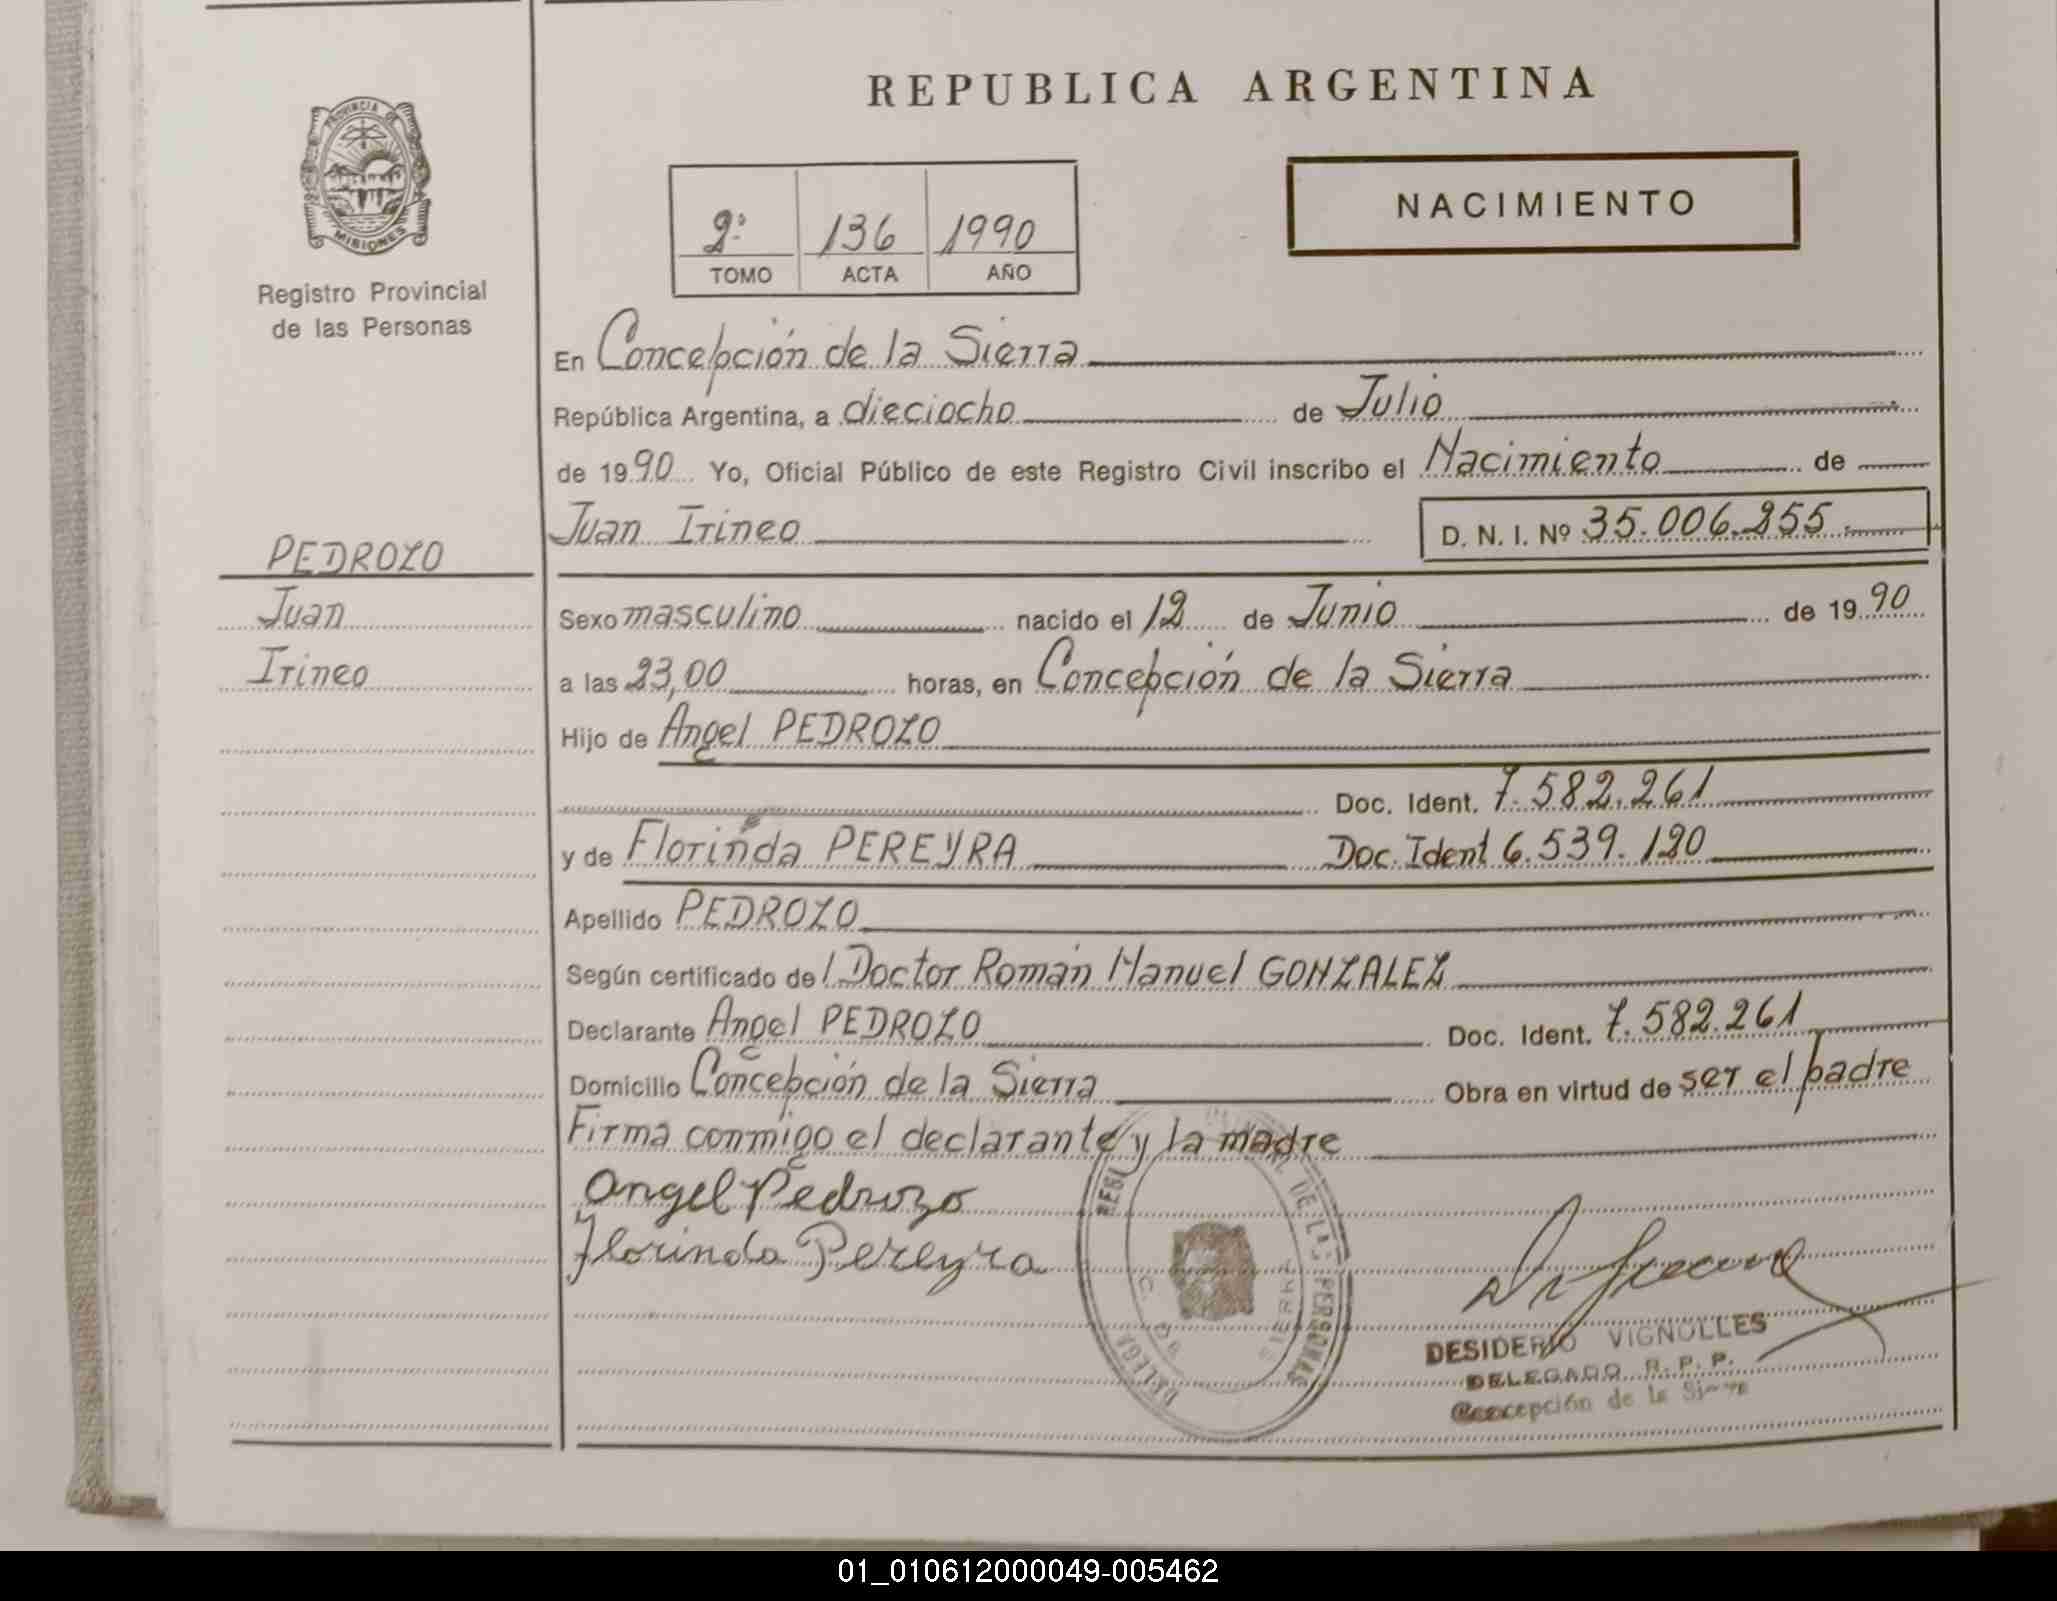 REPUBLICA ARGENTINA
PROVINCIA DE
MISIONES
Registro Provincial
de las Personas
2º 136 1990
TOMO ACTA AÑO
NACIMIENTO
En Concepción de la Sierra
República Argentina, a dieciocho de Julio
de 1990 Yo, Oficial Público de este Registro Civil inscribo el Nacimiento de
Juan Irineo D. N. I. Nº 35.006.255
PEDROZO
Juan
Irineo
Sexo masculino nacido el 12 de Junio de 1990
a las 23,00 horas, en Concepción de la Sierra
Hijo de Angel PEDROZO
Doc. Ident. 7.582.261
y de Florinda PEREYRA Doc. Ident 6.539.120
Apellido PEDROZO
Según certificado del Doctor Román Manuel GONZALEZ
Declarante Angel PEDROZO Doc. Ident. 7.582.261
Domicilio Concepción de la Sierra Obra en virtud de ser el padre
Firma conmigo el declarante y la madre
Angel Pedrozo
Florinda Pereyra
DE LAS PERSONAS
SIERRA
DESIDERIO VIGNOLLES
DELEGADO R. P. P.
Concepción de la Sierra
01_010612000049-005462